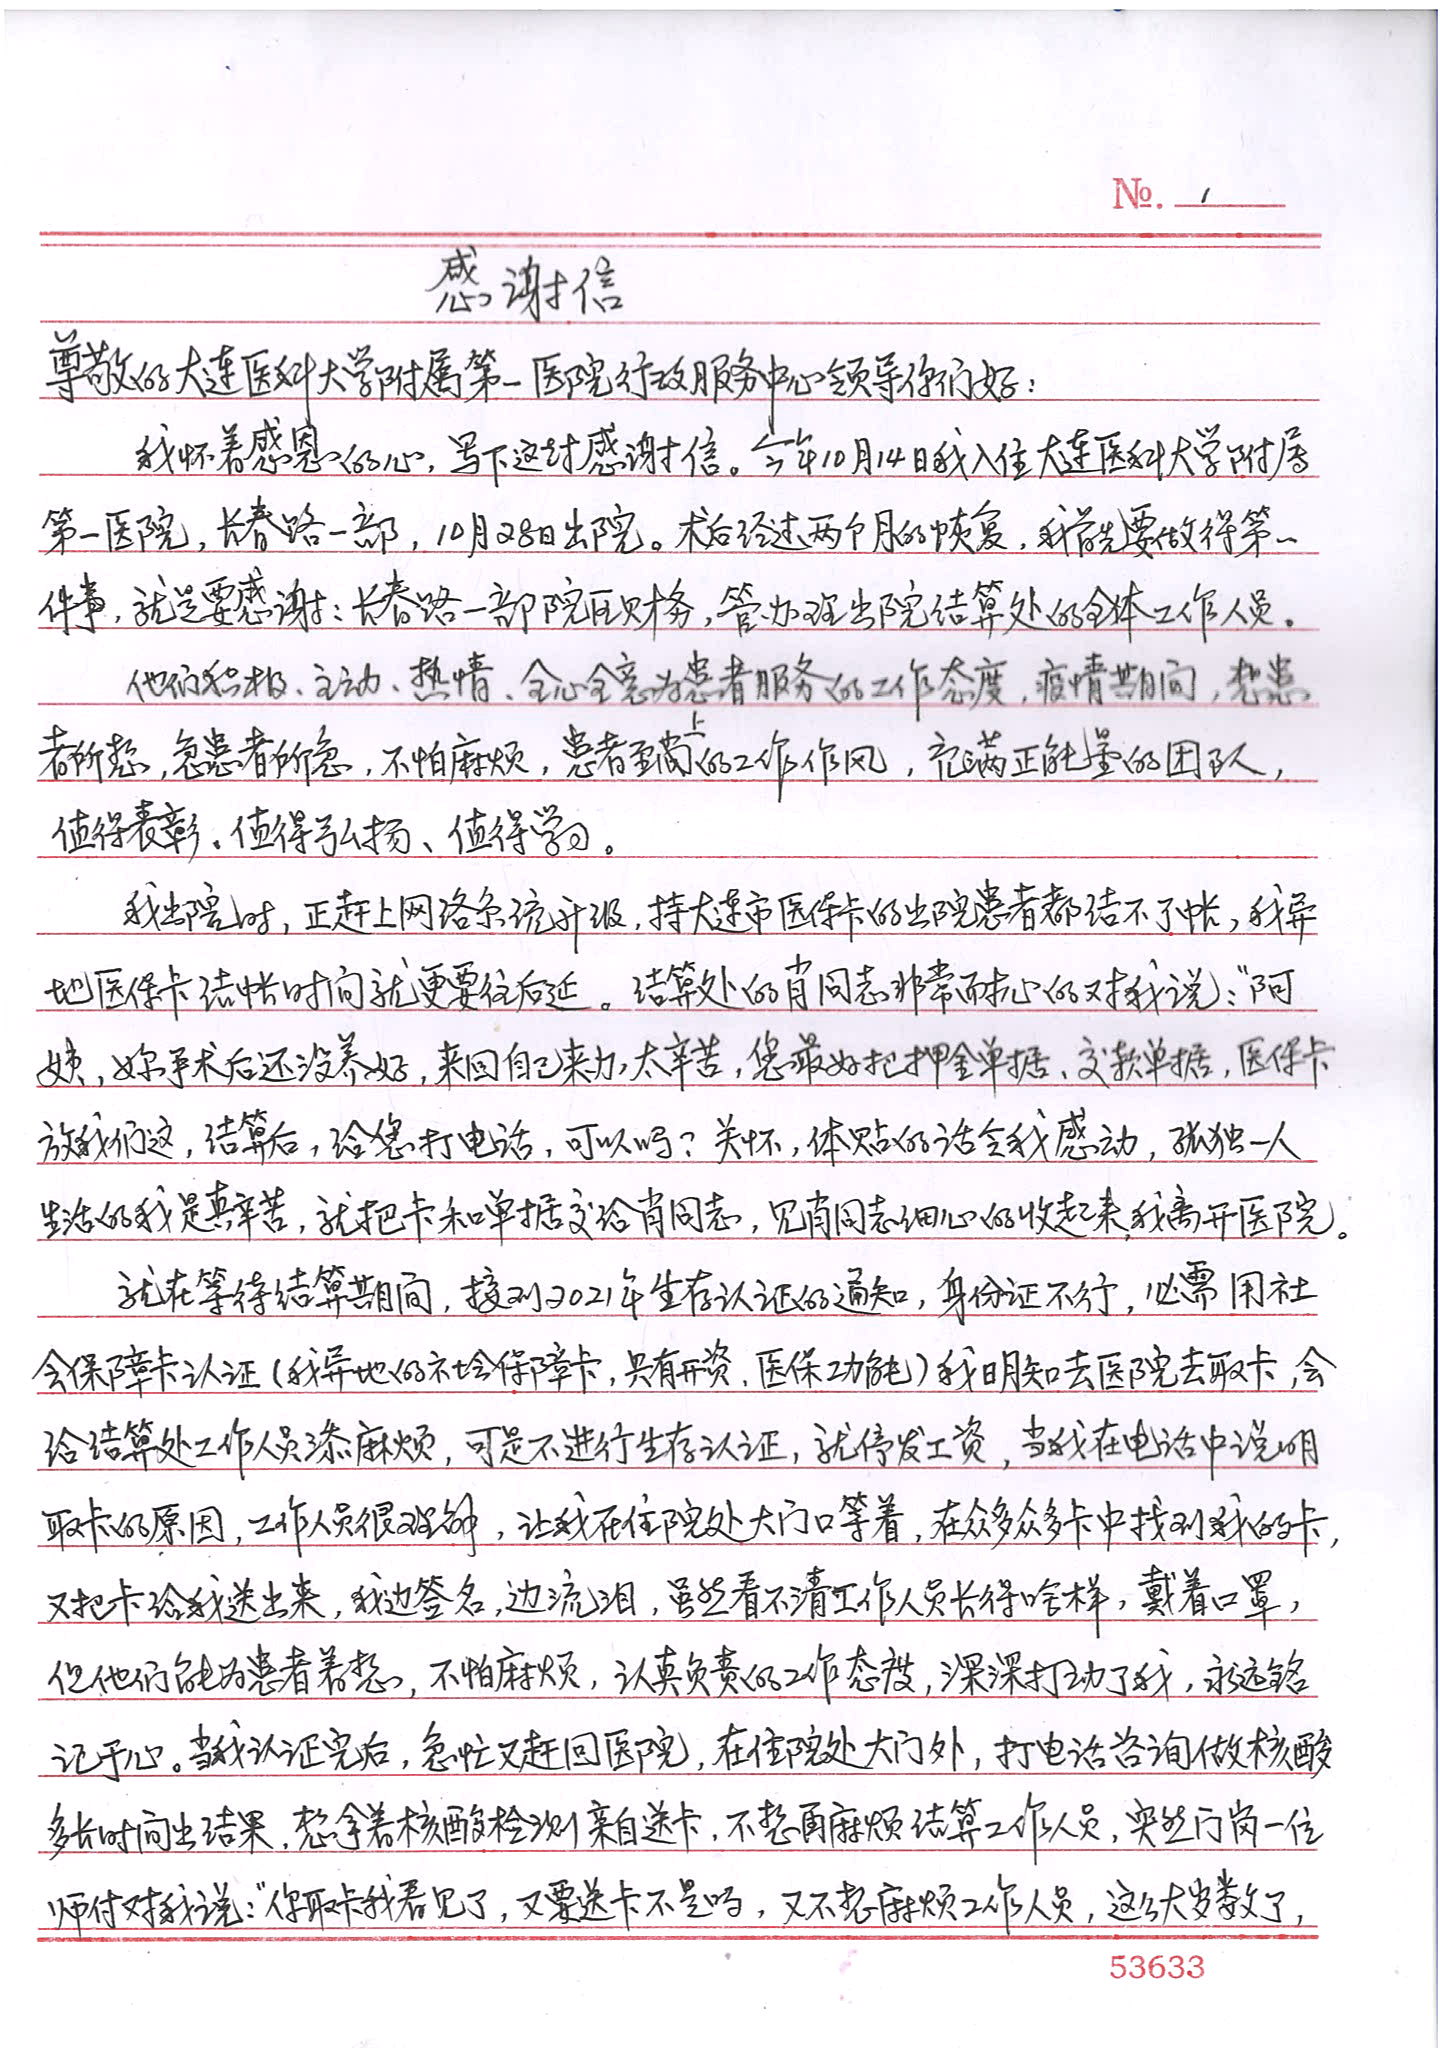 No. 1
感谢信
尊敬的大连医科大学附属第一医院行政服务中心领导你们好：
我怀着感恩的心，写下这封感谢信。今年10月14日我入住大连医科大学附属
第一医院，长春路一部，10月28日出院。术后经过两个月的恢复，我首先要做得第一
件事，就是要感谢：长春路一部院区财务，管办理出院结算处的全体工作人员。
他们积极、主动、热情、全心全意为患者服务的工作态度，疫情期间，想患
者所想，急患者所急，不怕麻烦，患者至尚上的工作作风，充满正能量的团队，
值得表彰。值得弘扬、值得学习。
我出院时，正赶上网络系统升级，持大连市医保卡的出院患者都结不了帐，我异
地医保卡结帐时间就更要往后延。结算处的肖同志非常耐心的对我说：“阿
姨，妳手术后还没养好，来回自己来办太辛苦，您最好把押金单据、交款单据，医保卡
放我们这，结算后，给您打电话，可以吗？关怀，体贴的话令我感动，孤独一人
生活的我是真辛苦，就把卡和单据交给肖同志，见肖同志细心的收起来，我离开医院。
就在等待结算期间，接到2021年生存认证的通知，身份证不行，必需用社
会保障卡认证（我异地的社会保障卡，具有开资，医保功能）我明知去医院去取卡，会
给结算处工作人员添麻烦，可是不进行生存认证，就停发工资，当我在电话中说明
取卡的原因，工作人员很理解，让我在住院处大门口等着，在众多众多卡中找到我的卡，
又把卡给我送出来，我边签名，边流泪，虽然看不清工作人员长得啥样，戴着口罩，
但他们能为患者着想，不怕麻烦，认真负责的工作态度，深深打动了我，永远铭
记于心。当我认证完后，急忙又赶回医院，在住院处大门外，打电话咨询做核酸
多长时间出结果，想拿着核酸检测亲自送卡，不想再麻烦结算工作人员，突然门岗一位
师付对我说：“你取卡我看见了，又要送卡不是吗，又不想麻烦工作人员，这么大岁数了，
53633